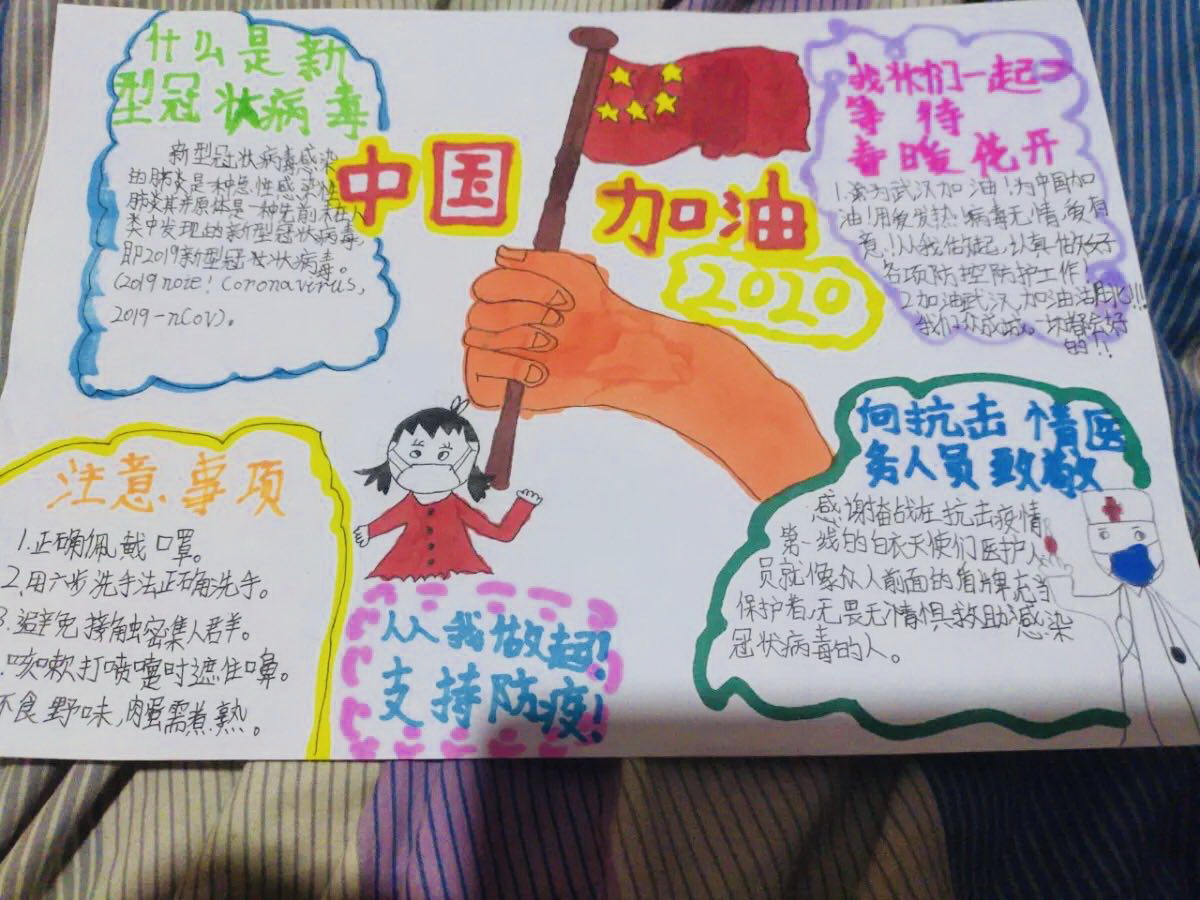 什么是新
型冠状病毒
新型冠状病毒感染
的肺炎是一种急性感染性
肺炎其病原体是一种先前未在人
类中发现的新型冠状病毒,
即2019新型冠状病毒。
(2019 note! Coronavirus,
2019-nCoV)。
中国
加油
2020
我们一起
等待
春暖花开
1.为武汉加油!为中国加
油!用爱发热 病毒无情,爱有
意!从我做起,认真做好
各项防控防护工作!
2.加油武汉,加油
我们众成城。一切都会好
的!!
注意事项
1.正确佩戴口罩。
2.用六步洗手法正确洗手。
3.避免接触密集人群。
咳嗽打喷嚏时遮住嘴鼻。
不食野味,肉蛋需煮熟。
从我做起!
支持防疫!
向抗击情医
务人员致敬
感谢奋战在抗击疫情
第一线的白衣天使们医护人
员就像众人前面的盾牌充当
保护者,无畏无情惧救助感染
冠状病毒的人。